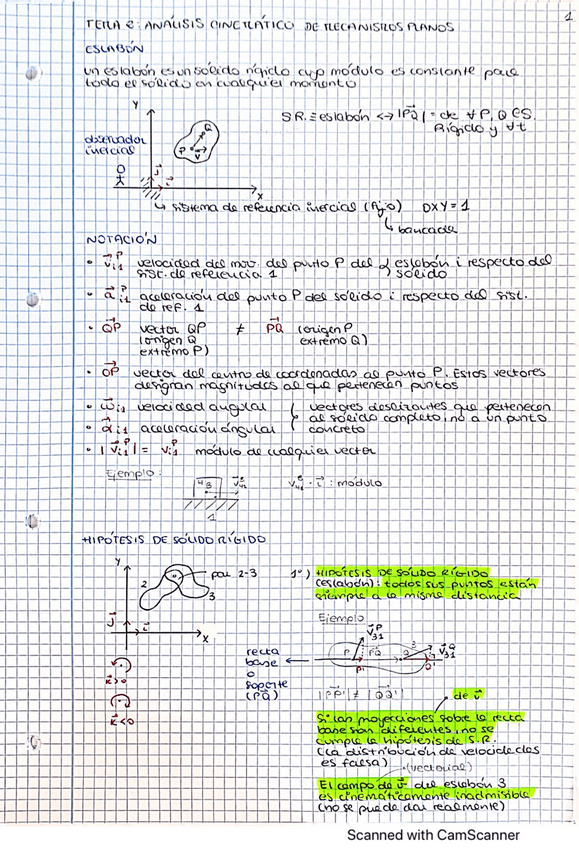 1
TEMA 2: ANÁLISIS CINEMÁTICO DE MECANISMOS PLANOS
ESLABÓN
un eslabón es un sólido rígido cuyo módulo es constante para
todo el sólido en cualquier momento
Y
observador
inercial
P
Q
S.R. ≡ eslabón ↔ |PQ| = cte ∀ P, Q ∈ S.
Rígido y ∀t
X
sistema de referencia inercial (Fijo) OXY = 1
bancada
NOTACIÓN
• v⃗ᴾi1 velocidad del mov. del punto P del { eslabón i respecto del
sist. de referencia 1 sólido
• a⃗ᴾi1 aceleración del punto P del sólido i respecto del sist.
de ref. 1
• QP vector QP ≠ PQ (origen P
(origen Q extremo Q)
extremo P)
• OP vector del centro de coordenadas al punto P. Estos vectores
designan magnitudes al que pertenecen puntos
• ω⃗i1 velocidad angular { vectores deslizantes que pertenecen
• α⃗i1 aceleración angular al sólido completo, no a un punto
concreto
• |v⃗ᴾi1| = vᴾi1 módulo de cualquier vector
Ejemplo:
4 B
1
· i⃗ : módulo
HIPÓTESIS DE SÓLIDO RÍGIDO
Y
2
3
par 2-3
j⃗
i⃗
X
k⃗>0
k⃗<0
1º) HIPÓTESIS DE SÓLIDO RÍGIDO
(eslabón): todos sus puntos están
siempre a la misma distancia
Ejemplo
v⃗ᴾ31
v⃗Q31
P
PQ
P'
Q
Q'
recta
base
o
soporte
(PQ)
|PP'| ≠ |QQ'|
de v⃗
Si las proyecciones sobre la recta
base son diferentes, no se
cumple la hipótesis de S.R.
(La distribución de velocidades
es falsa)
(vectorial)
El campo de v⃗ del eslabón 3
es cinemáticamente inadmisible
(no se puede dar realmente)
Scanned with CamScanner